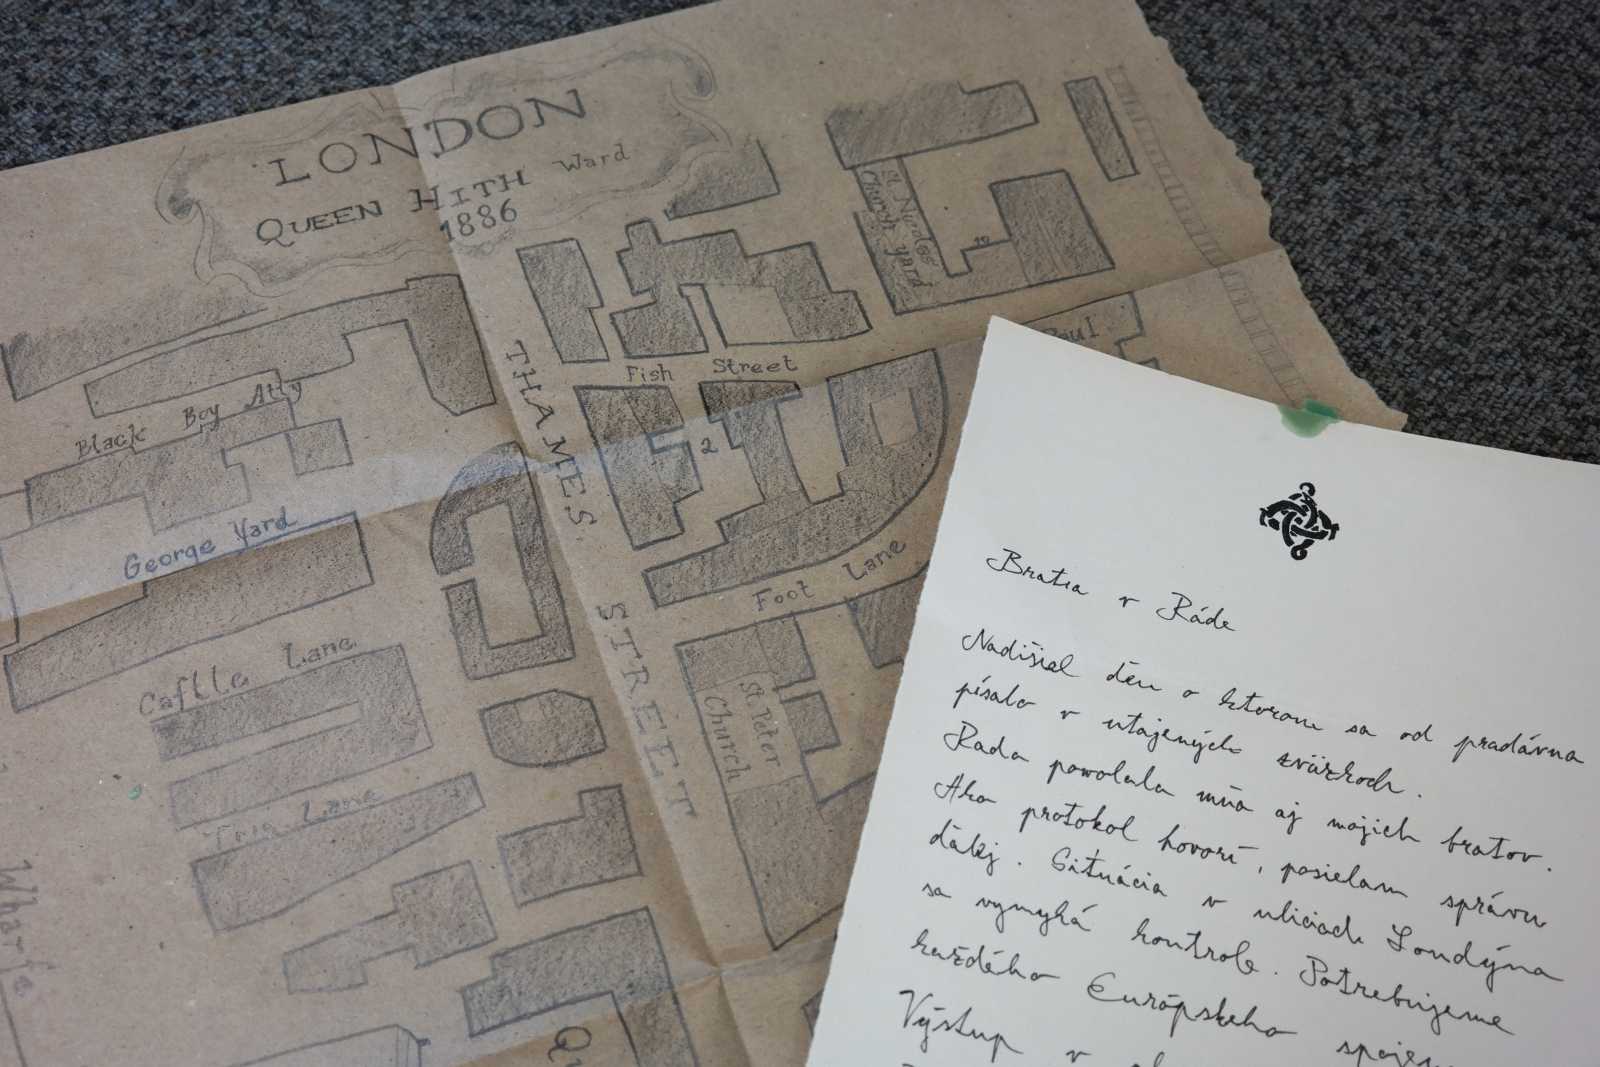 LONDON
QUEEN HITH Ward
1886
St. Nicolas
Church Yard
10
THAMES STREET
Fish Street
Paul
Black Boy Ally
2
George Yard
Foot Lane
Castle Lane
St. Peter
Church
Trig Lane
Wharfe
Qu
Bratia v Ráde
Nadišiel deň o ktorom sa od pradávna
písalo v utajených zväzkoch.
Rada povolala mňa aj mojich bratov.
Ako protokol hovorí, posielam správu
ďalej. Situácia v uliciach Londýna
sa vymyká kontrole. Potrebujeme
každého Európskeho spojen
Výstup v